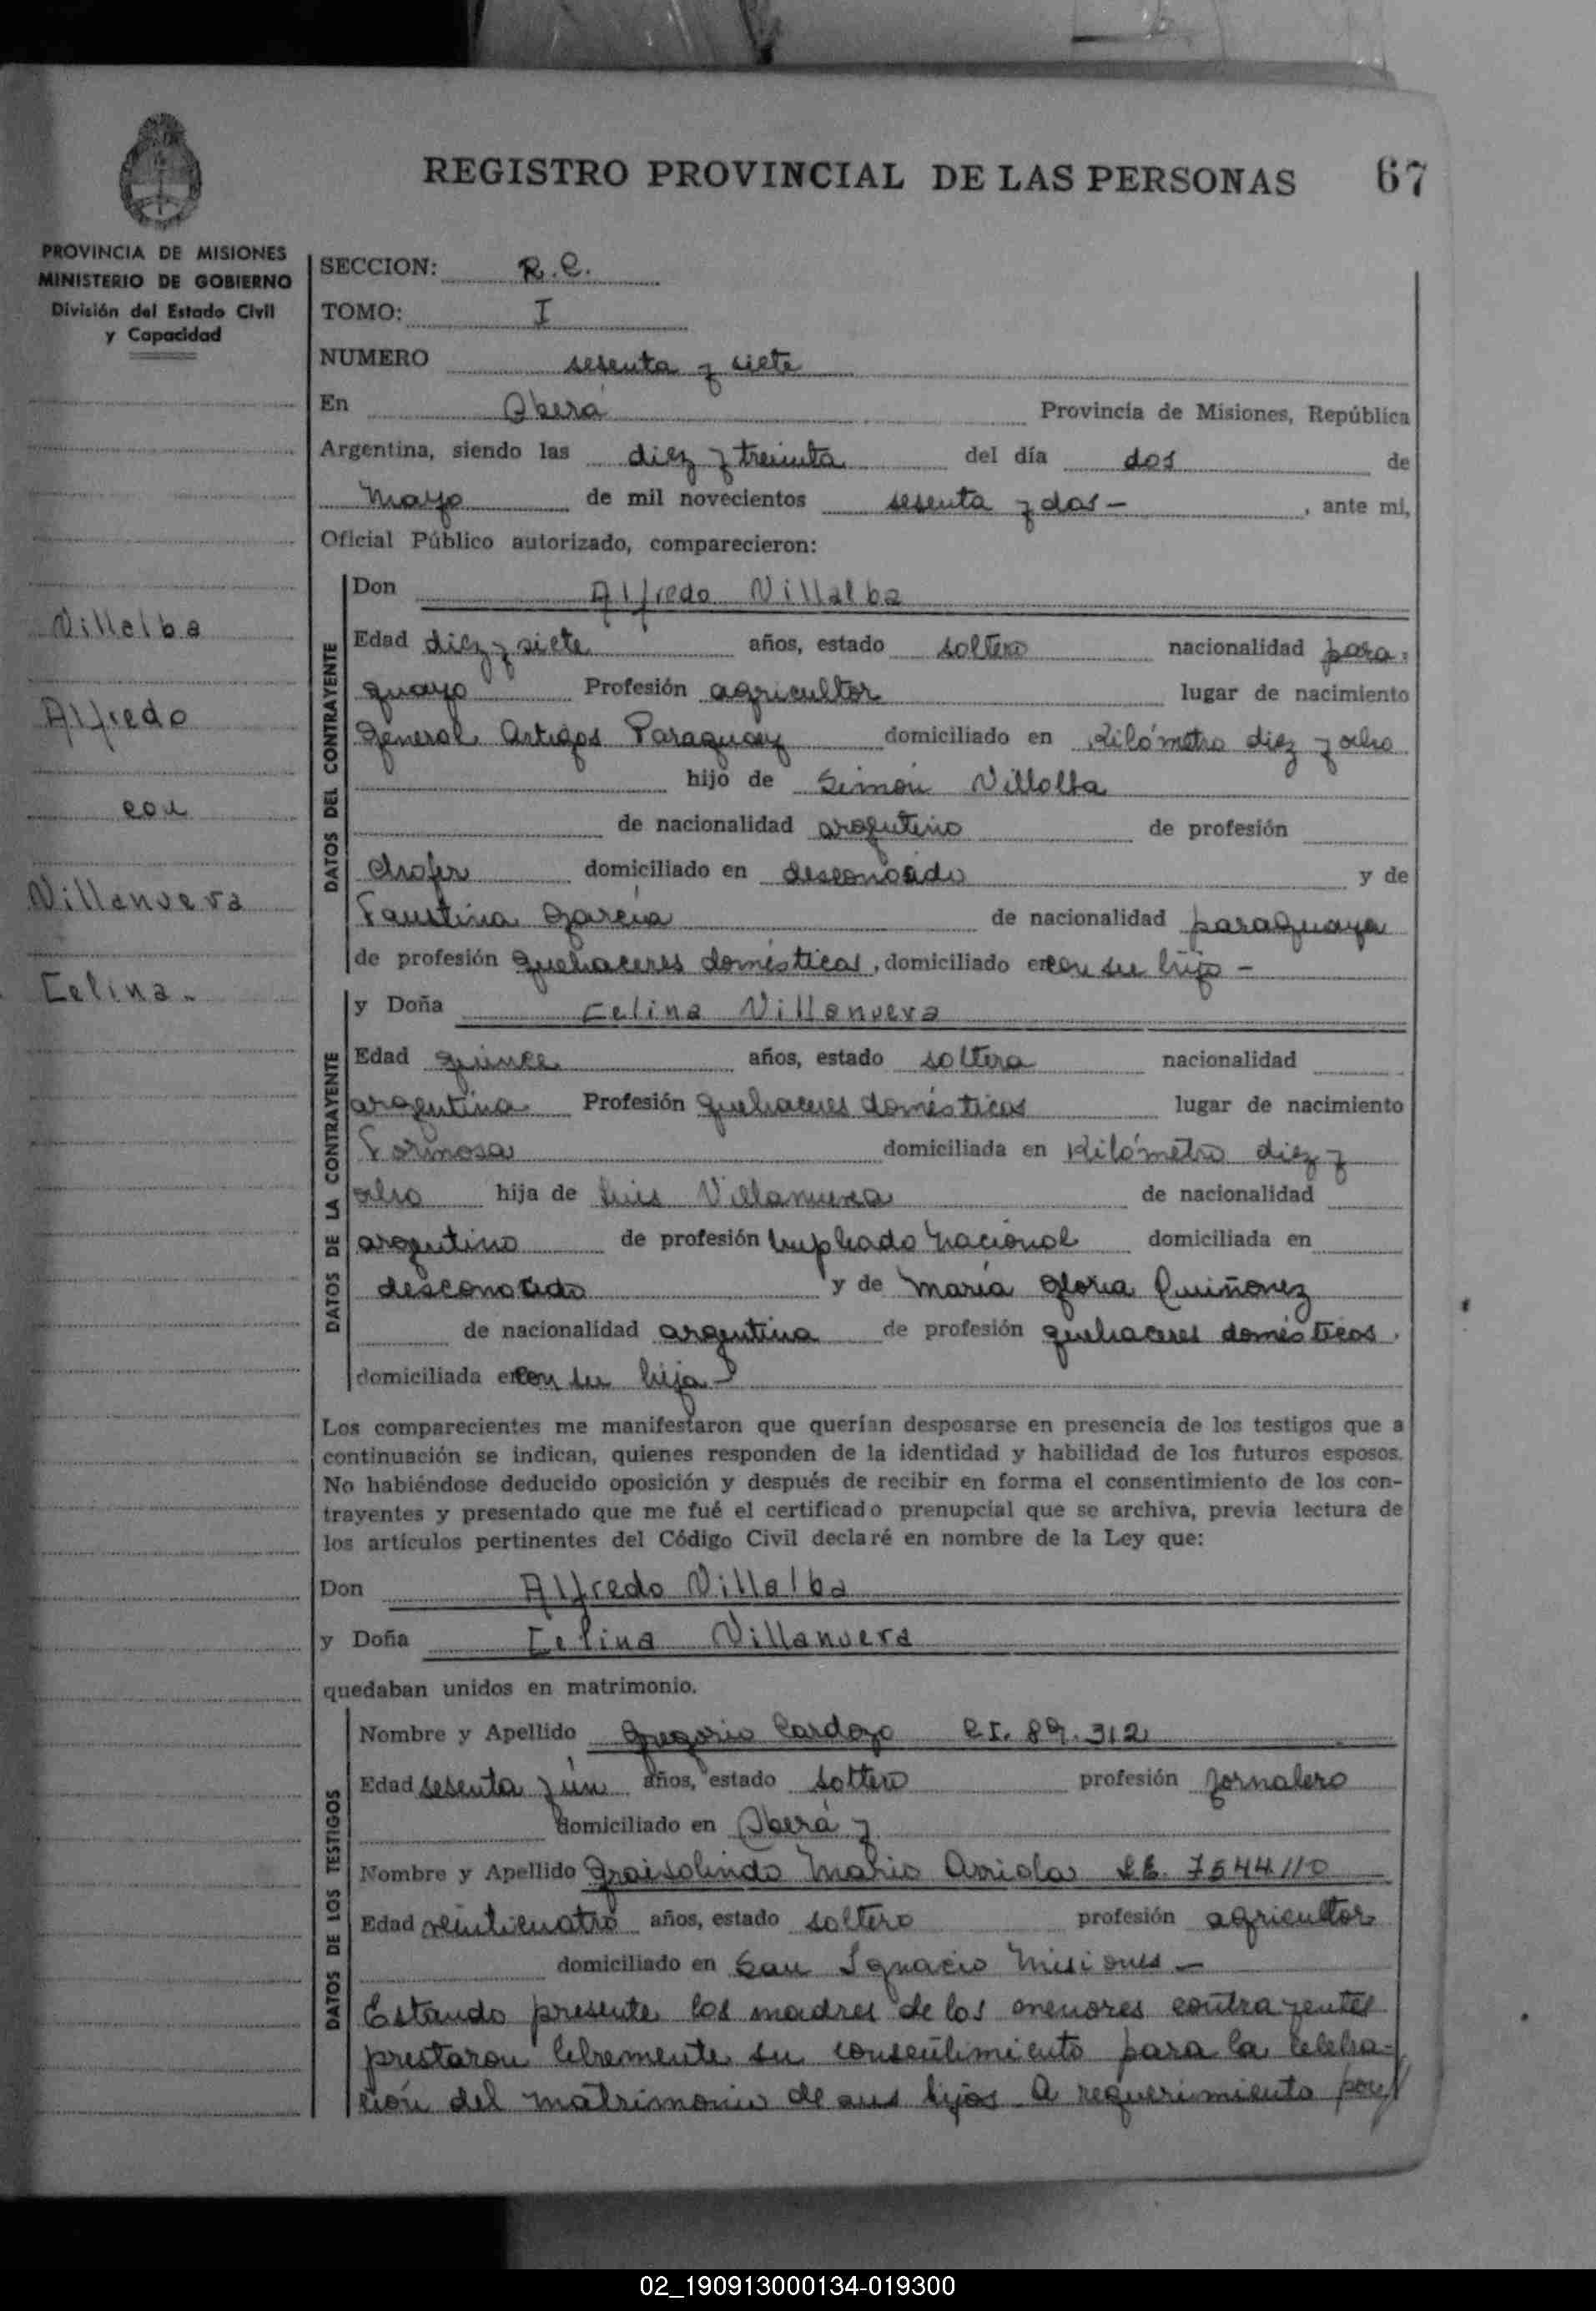 REGISTRO PROVINCIAL DE LAS PERSONAS 67
PROVINCIA DE MISIONES
MINISTERIO DE GOBIERNO
División del Estado Civil
y Capacidad
Villalba
Alfredo
con
Villanueva
Celina.
SECCION: R.C.
TOMO: I
NUMERO sesenta y siete
En Oberá Provincia de Misiones, República
Argentina, siendo las diez y treinta del día dos de
Mayo de mil novecientos sesenta y dos - , ante mi,
Oficial Público autorizado, comparecieron:
DATOS DEL CONTRAYENTE
Don Alfredo Villalba
Edad diez y siete años, estado soltero nacionalidad para-
guayo Profesión agricultor lugar de nacimiento
General Artigas Paraguay domiciliado en Kilómetro diez y ocho
hijo de Simón Villalba
de nacionalidad argentino de profesión
chofer domiciliado en desconocido y de
Faustina García de nacionalidad paraguaya
de profesión quehaceres domésticos, domiciliado en con su hijo -
DATOS DE LA CONTRAYENTE
y Doña Celina Villanueva
Edad quince años, estado soltera nacionalidad
argentina Profesión quehaceres domésticos lugar de nacimiento
Formosa domiciliada en Kilómetro diez y
ocho hija de Luis Villanueva de nacionalidad
argentino de profesión Empleado Nacional domiciliada en
desconocido y de María Gloria Quiñonez
de nacionalidad argentina de profesión quehaceres domésticos.
domiciliada en con su hija -
Los comparecientes me manifestaron que querían desposarse en presencia de los testigos que a
continuación se indican, quienes responden de la identidad y habilidad de los futuros esposos.
No habiéndose deducido oposición y después de recibir en forma el consentimiento de los con-
trayentes y presentado que me fué el certificado prenupcial que se archiva, previa lectura de
los artículos pertinentes del Código Civil declaré en nombre de la Ley que:
Don Alfredo Villalba
y Doña Celina Villanueva
quedaban unidos en matrimonio.
DATOS DE LOS TESTIGOS
Nombre y Apellido Gregorio Cardozo C.I. 89.312
Edad sesenta y un años, estado soltero profesión jornalero
domiciliado en Oberá y
Nombre y Apellido Mario Arriola L.E. 7544110
Edad veinticuatro años, estado soltero profesión agricultor
domiciliado en San Ignacio Misiones -
Estando presente las madres de los menores contrayentes
prestaron libremente su consentimiento para la celebra-
ción del matrimonio de sus hijos. A requerimiento por
02_190913000134-019300